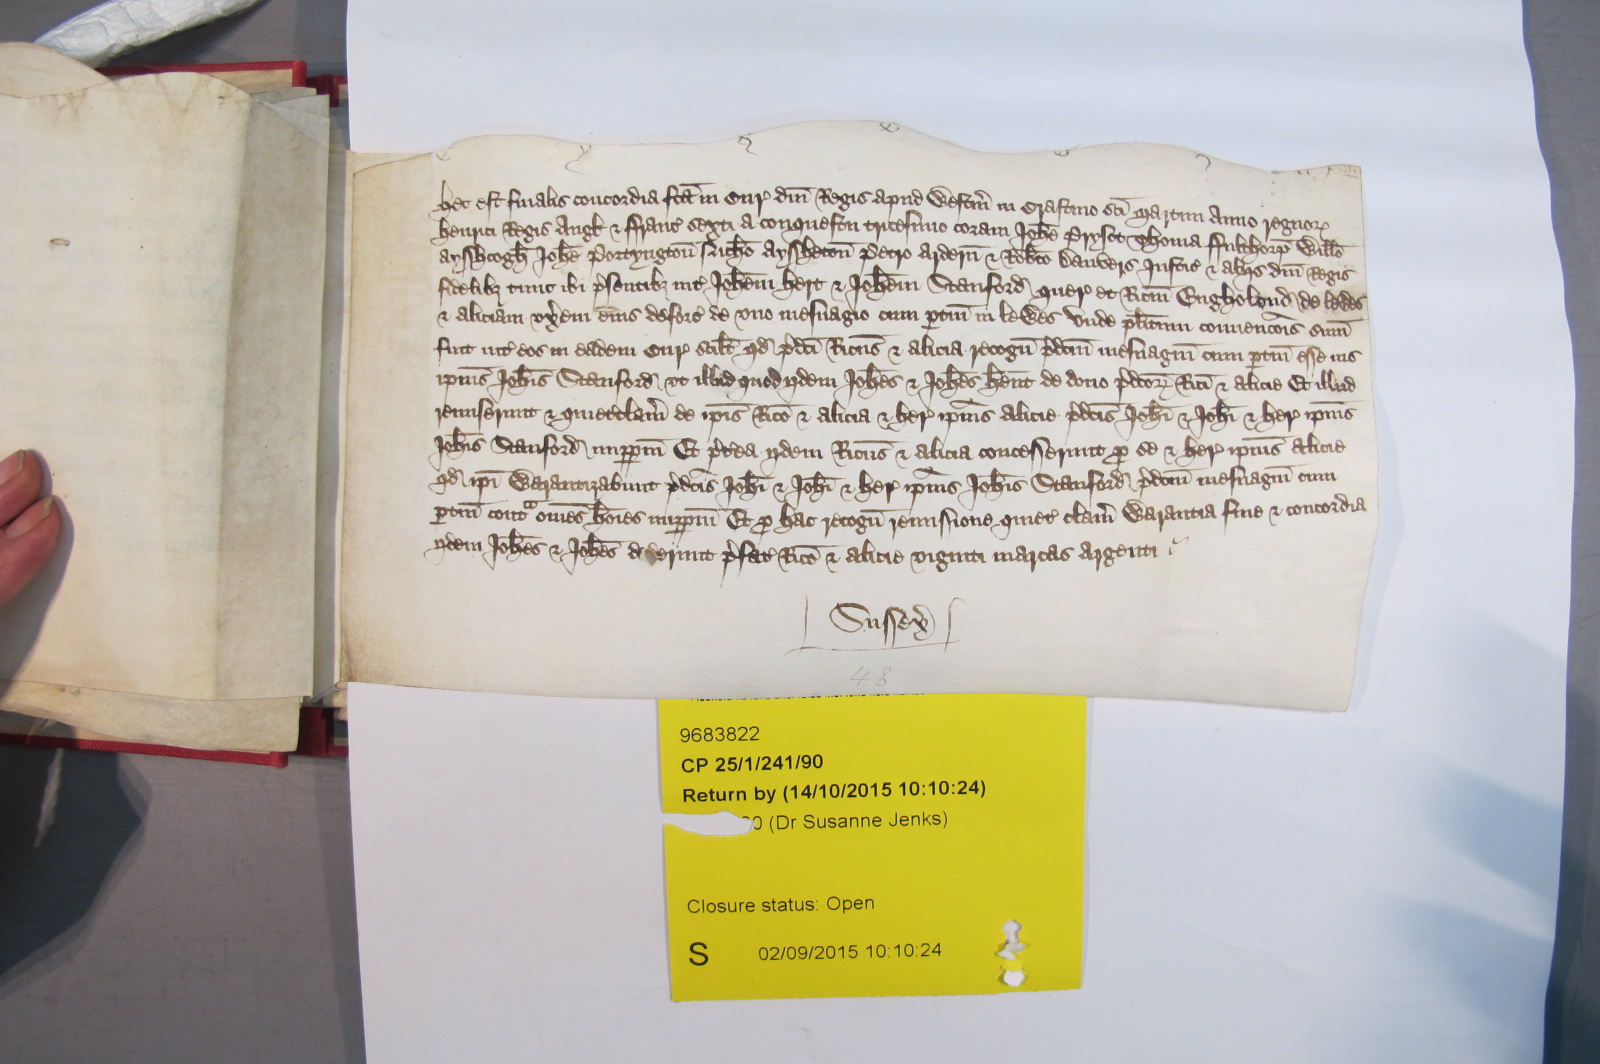 Hec est finalis concordia fca in Cur dni Regis apud Westm in Crastino sci Martini Anno regnor
Henrici Regis Angl & Franc sexti a conquestu tricesimo coram Johe Prysot Thoma Fulthorp Willo
Ayshcogh Johe Portyngton Rico Aysheton Petro Ardern & Robto Danvers Justic & alijs dni Regis
fidelibz tunc ibi psentibz int Johem Hert & Johem Stanford quer et Ricm Engholond de Lewes
& Aliciam uxem eius deforc de uno mesuagio cum ptin in Lewes Unde plitum convencois sum
fuit int eos in eadem Cur scilt qd pdci Ricus & Alicia recogn pdcm mesuagiu cum ptin esse ius
ipius Johis Stanford ut illud quod ijdem Johes & Johes hent de dono pdcor Rici & Alicie Et illud
remiserunt & quietclam de ipis Rico & Alicia & her ipius Alicie pdcis Johi & Johi & her ipius
Johis Stanford imppm Et pterea ijdem Ricus & Alicia concesserunt p se & her ipius Alicie
qd ipi Warantizabunt pdcis Johi & Johi & her ipius Johis Stanford pdcm mesuagiu cum
ptin contra omes hoies imppm Et p hac recogn remissione quiet clam Warantia fine & concordia
ijdem Johes & Johes dederunt pfat Rico & Alicie viginti marcas argenti
Sussex
48
9683822
CP 25/1/241/90
Return by (14/10/2015 10:10:24)
0 (Dr Susanne Jenks)
Closure status: Open
S 02/09/2015 10:10:24